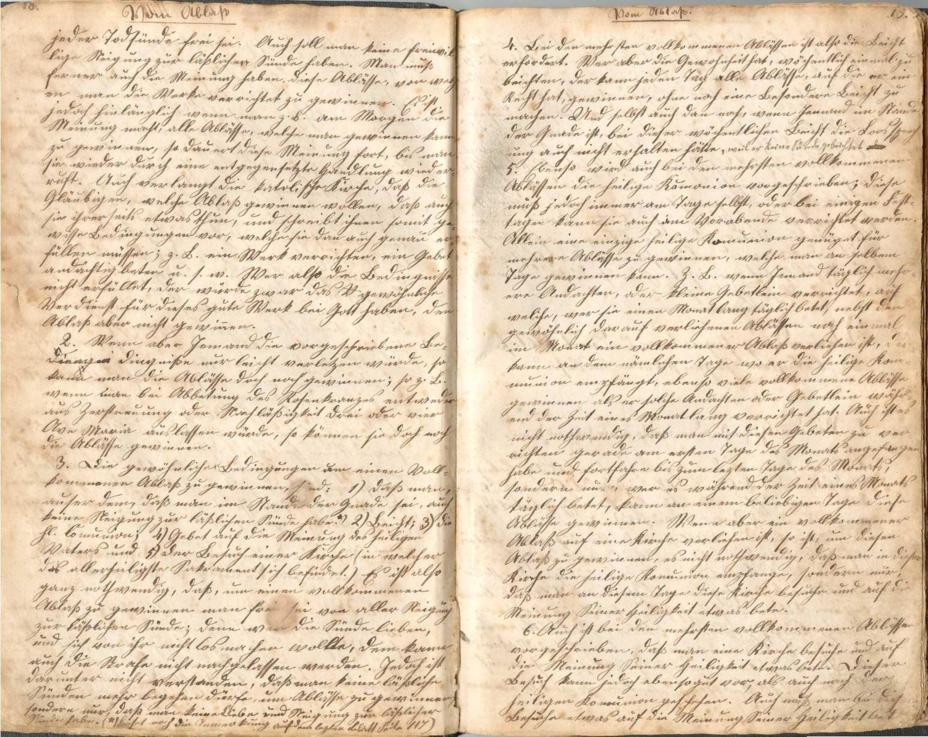 18.
Vom Ablaß
jeder Todsünde frei sei. Auch soll man keine freiwil-
lige Neigung zur läßlichen Sünde haben. Man muß
ferner auch die Meinung haben, diese Ablässe, von weg-
en man die Werke verrichtet zu gewinnen. Es ist
jedoch hinlänglich wenn man z. B. am Morgen die
Meinung macht, alle Ablässe, welche man gewinnen kann
zu gewinnen, so dauert diese Meinung fort, bis man
sie wieder durch eine entgegengesetzte Handlung wider-
ruft. Auch verlangt die katolische Kirche, daß die
Gläubigen, welche Ablaß gewinnen wollen, daß auch
sie ihrerseits etwas thun, und schreibt ihnen somit ge-
wisse Bedingungen vor, welche sie dan auch genau er-
füllen müssen; z. B. ein Werk verrichten, ein Gebet
andächtig beten u. s. w. Wer also die Bedingnisse
nicht erfüllet, der würde zwar das gewöhnliche
Verdienst für dieses gute Werk bei Gott haben, den
Ablaß aber nicht gewinnen.
2. Wenn aber Jemand die vorgeschriebene Be-
dingniße nur leicht verletzen würde, so
kann man die Ablässe doch noch gewinnen; so z. B.
wenn man bei Abbetung des Rosenkranzes entweder
aus Zerstreuung oder Nachläßigkeit drei oder vier
Ave Maria auslassen würde, so können sie doch noch
die Ablässe gewinnen.
3. Die gewöhnlichen Bedingungen um einen Voll-
kommenen Ablaß zu gewinnen sind: 1) Daß man,
außer dem, daß man im Stande der Gnade sei, auch
keine Neigung zur läßlichen Sünde habe; 2) Beicht; 3) die
hl. Comunion; 4) Gebet auf die Meinung des heiligen
Vaters und 5) der Besuch einer Kirche (in welcher
das allerheiligste Sakrament sich befindet.) Es ist also
ganz nothwendig, daß, um einen vollkommenen
Ablaß zu gewinnen man frei sei von aller Neigung
zur läßlichen Sünde; denn wer die Sünde lieben,
und sich von ihr nicht los machen wollte, dem kann
auch die Strafe nicht nachgelassen werden. Jedoch ist
darunter nicht verstanden, daß man keine läßliche
Sünden mehr begehen dürfe um Ablässe zu gewinnen
sondern nur, daß man keine Liebe und Neigung zur läßlichen
Sünde habe. auf dem letzten Blatt Seite 117)
Vom Ablaß.
19.
4. Bei den mehrsten vollkommenen Ablässen ist also die Beicht
erfordert. Wer aber die Gewohnheit hat, wöchentlich einmal zu
beichten, der kann jeden Tag alle Ablässe, auf die er ein
Recht hat, gewinnen, ohne noch eine besondere Beicht zu
machen. Und selbst auch dan noch, wenn Jemand im Stande
der Gnade ist, bei dieser wöchentlichen Beicht die Lossprech-
ung auch nicht erhalten hätte, weil er keine Sünde gebeichtet
5. Ebenso wird auch bei den mehrsten vollkommenen
Ablässen die heilige Komunion vorgeschrieben; diese
muß jedoch immer am Tage selbst, oder bei einigen Fest-
tagen kann sie auch am Vorabend verrichtet werden.
Allein eine einzige heilige Komunion genügt, für
mehrere Ablässe zu gewinnen, welche man an selben
Tage gewinnen kann. Z. B. wenn Jemand täglich mehr-
ere Andachten, oder kleine Gebetlein verrichtet, auf
welche, wer sie einen Monat lang täglich betet, nebst den
gewöhnlich darauf verliehenen Ablässen noch einmal
im Monat ein vollkommener Ablaß verliehen ist, der
kann an dem nämlichen Tage wo er die heilige Kom-
munion empfängt, ebenso viele vollkommene Ablässe
gewinnen als er solche Andachten oder Gebetlein währ-
end der Zeit eines Monat lang verrichtet hat. Auch ist es
nicht nothwendig, daß man mit diesen Gebeten zu ver-
richten gerade am ersten Tage des Monats angefangen
habe und fortfahre bis zum letzten Tage des Monats,
sondern nur, wer es während der Zeit eines Monats
täglich betet, kann an einem beliebigen Tage diese
Ablässe gewinnen. Wenn aber ein vollkommener
Ablaß auf eine Kirche verliehen ist, so ist, um diesen
Ablaß zu gewinnen, es nicht nothwendig, daß man in dieser
Kirche die heilige Komunion empfange, sondern nur,
daß man an diesem Tage diese Kirche besuche und auf die
Meinung Seiner Heiligkeit etwas bete.
6. Auch ist bei den mehrsten vollkommenen Ablässen
vorgeschrieben, daß man eine Kirche besuche und auf
die Meinung Seiner Heiligkeit etwas bete. Dieser
Besuch kann jedoch ebenso gut vor als auch nach der
heiligen Komunion geschehen. Auch muß man bei diesem
Besuche etwas auf die Meinung Seiner Heiligkeit bet-